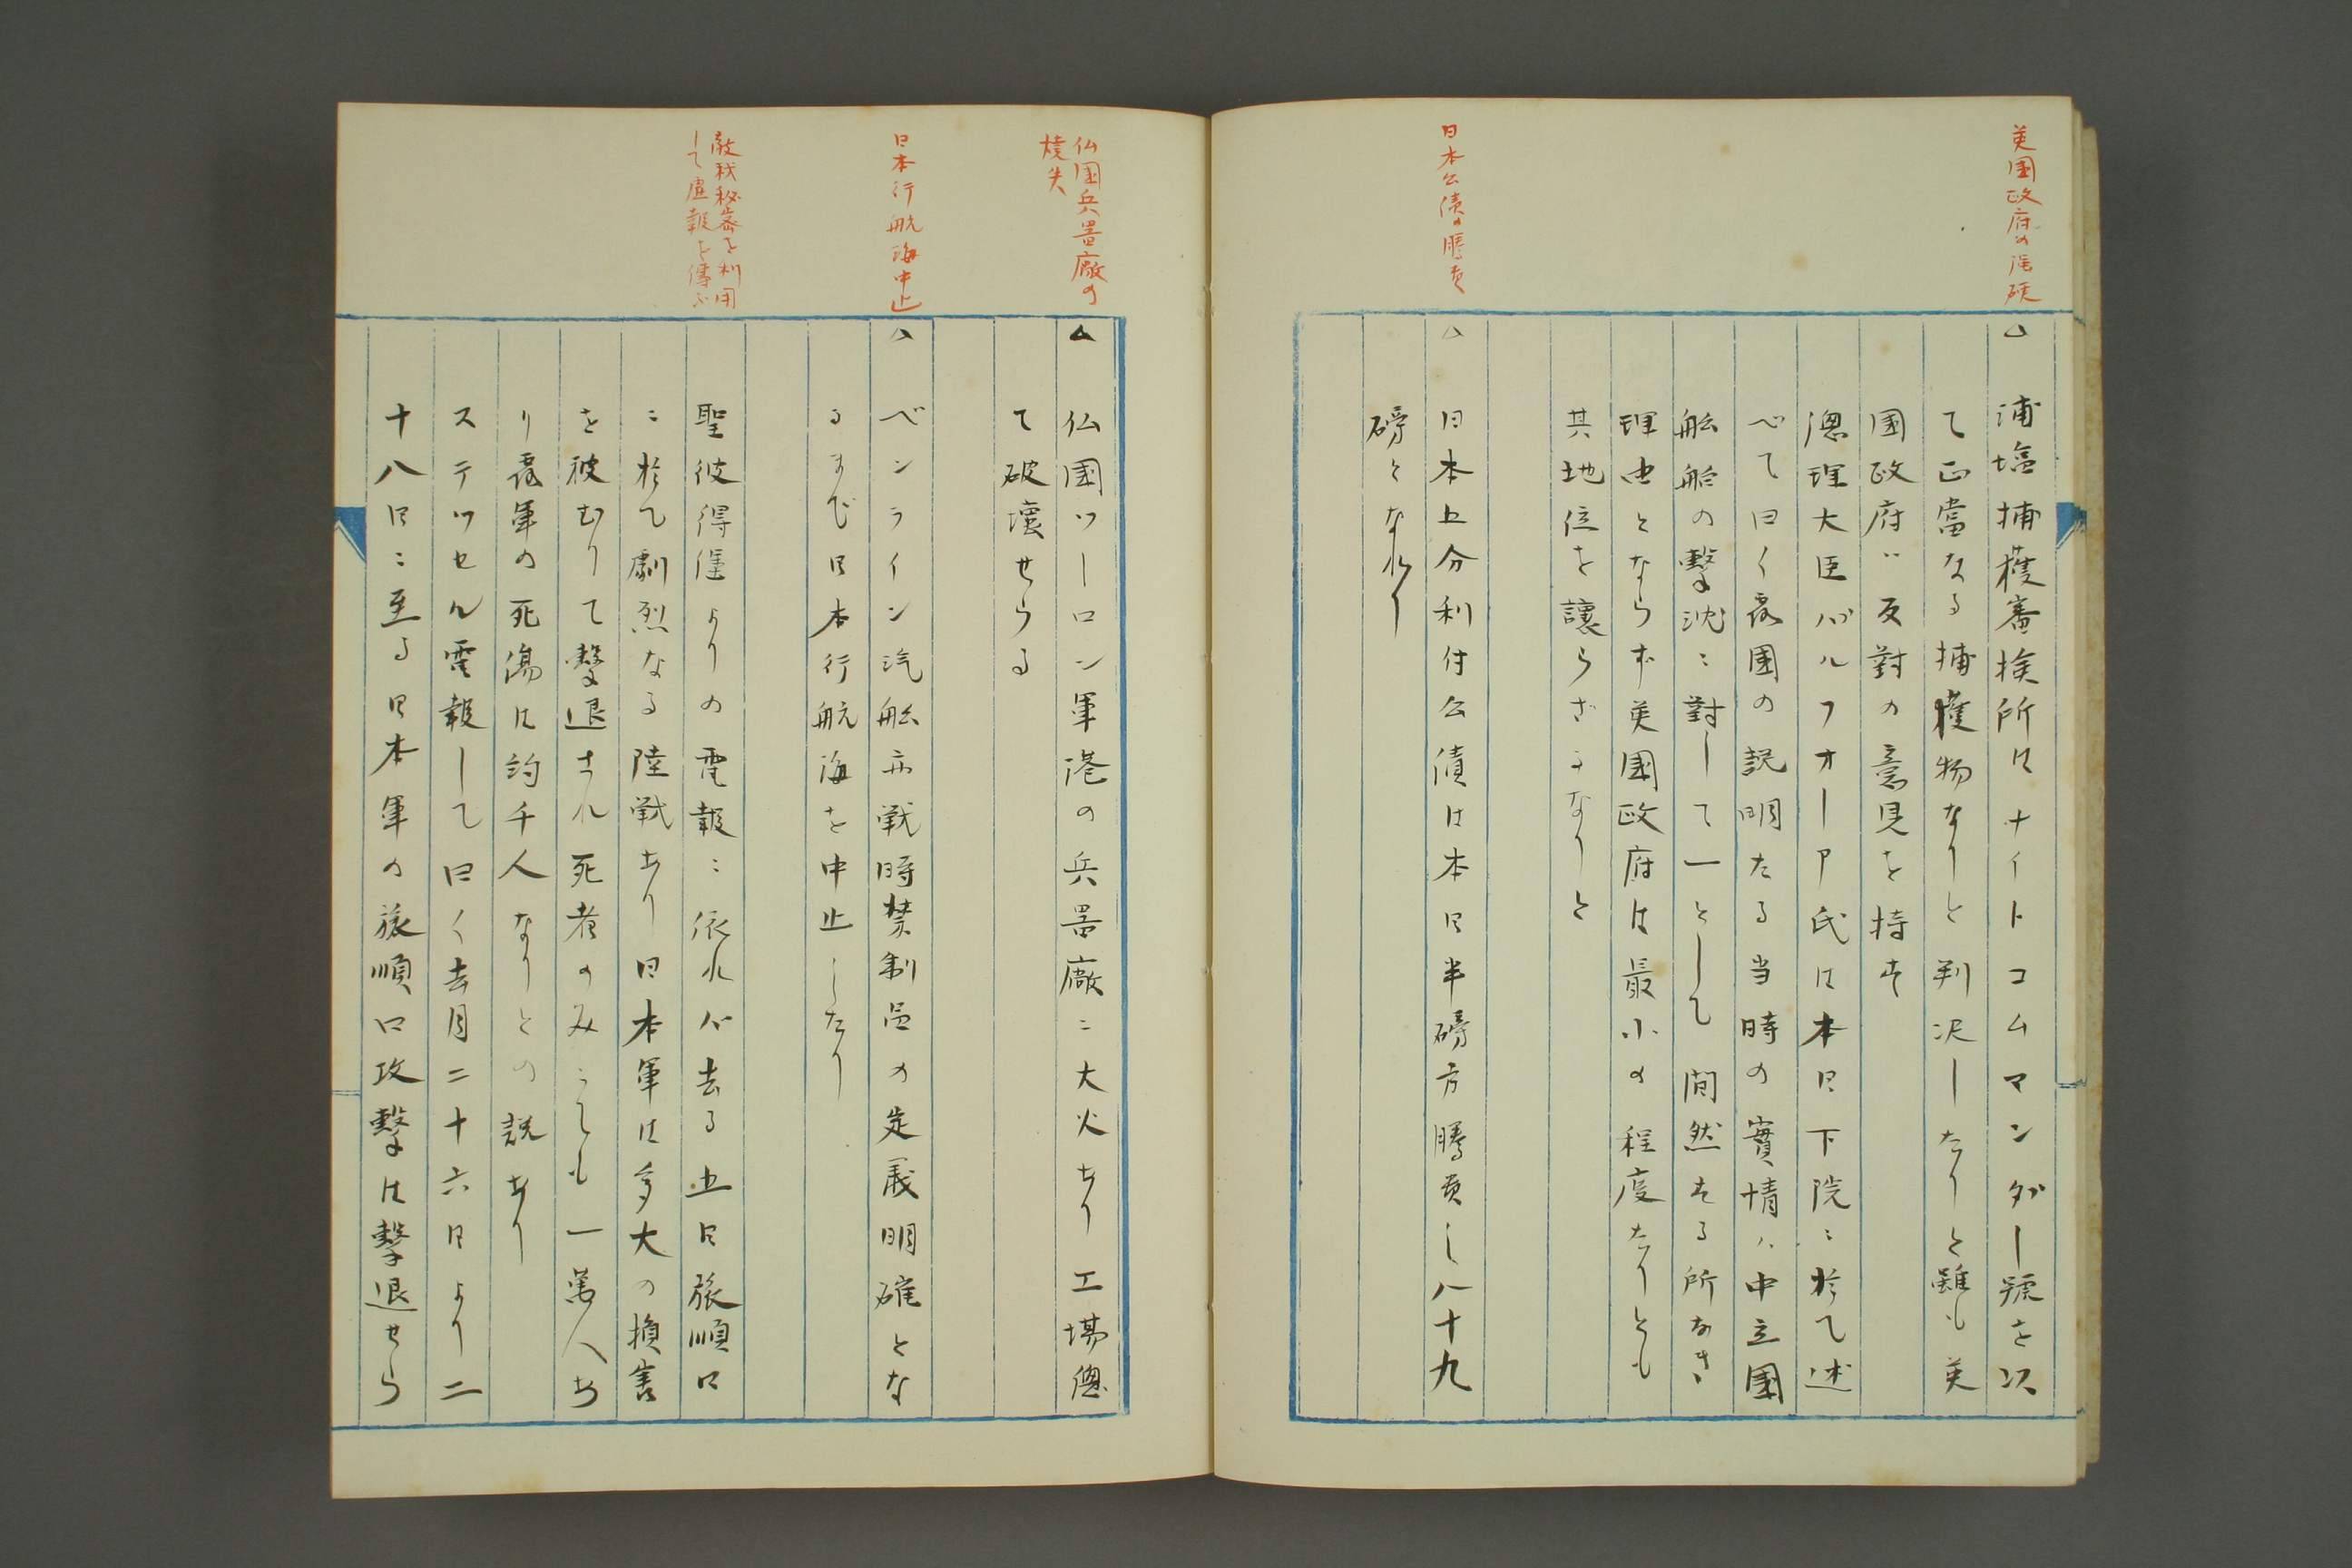 英国政府の強硬
△ 浦塩捕獲審検所はナイトコムマンダー號を以
て正當なる捕獲物なりと判决したりと雖も英
国政府ハ反對の意見を持す
總理大臣バルフオーア氏は本日下院ニ於て述
べて曰く露國の説明たる当時の實情ハ中立國
船舶の撃沈ニ對して一として間然する所なき
理由とならず英國政府は最小の程度なりとも
其地位を讓らざるなりと
日本公債の騰貴
△ 日本五分利付公債は本日半磅方騰貴し八十九
磅となれり
仏國兵噐廠の
燒失
▲ 仏國ツーロン軍港の兵噐廠ニ大火あり工塲總
て破壞せらる
日本行航海中止
△ ベンライン汽船ハ戦時禁制品の定義明確とな
るまで日本行航海を中止したり
敵我秘密を利用
して虚報を傳ふ
聖彼得堡よりの電報ニ依れバ去る五日旅順口
ニ於て劇烈なる陸戦あり日本軍は多大の損害
を被むりて撃退され死者のみにても一萬人あ
り露軍の死傷は約千人なりとの説あり
ステツセル電報して曰く去月二十六日より二
十八日ニ至る日本軍の旅順口攻撃は撃退せら